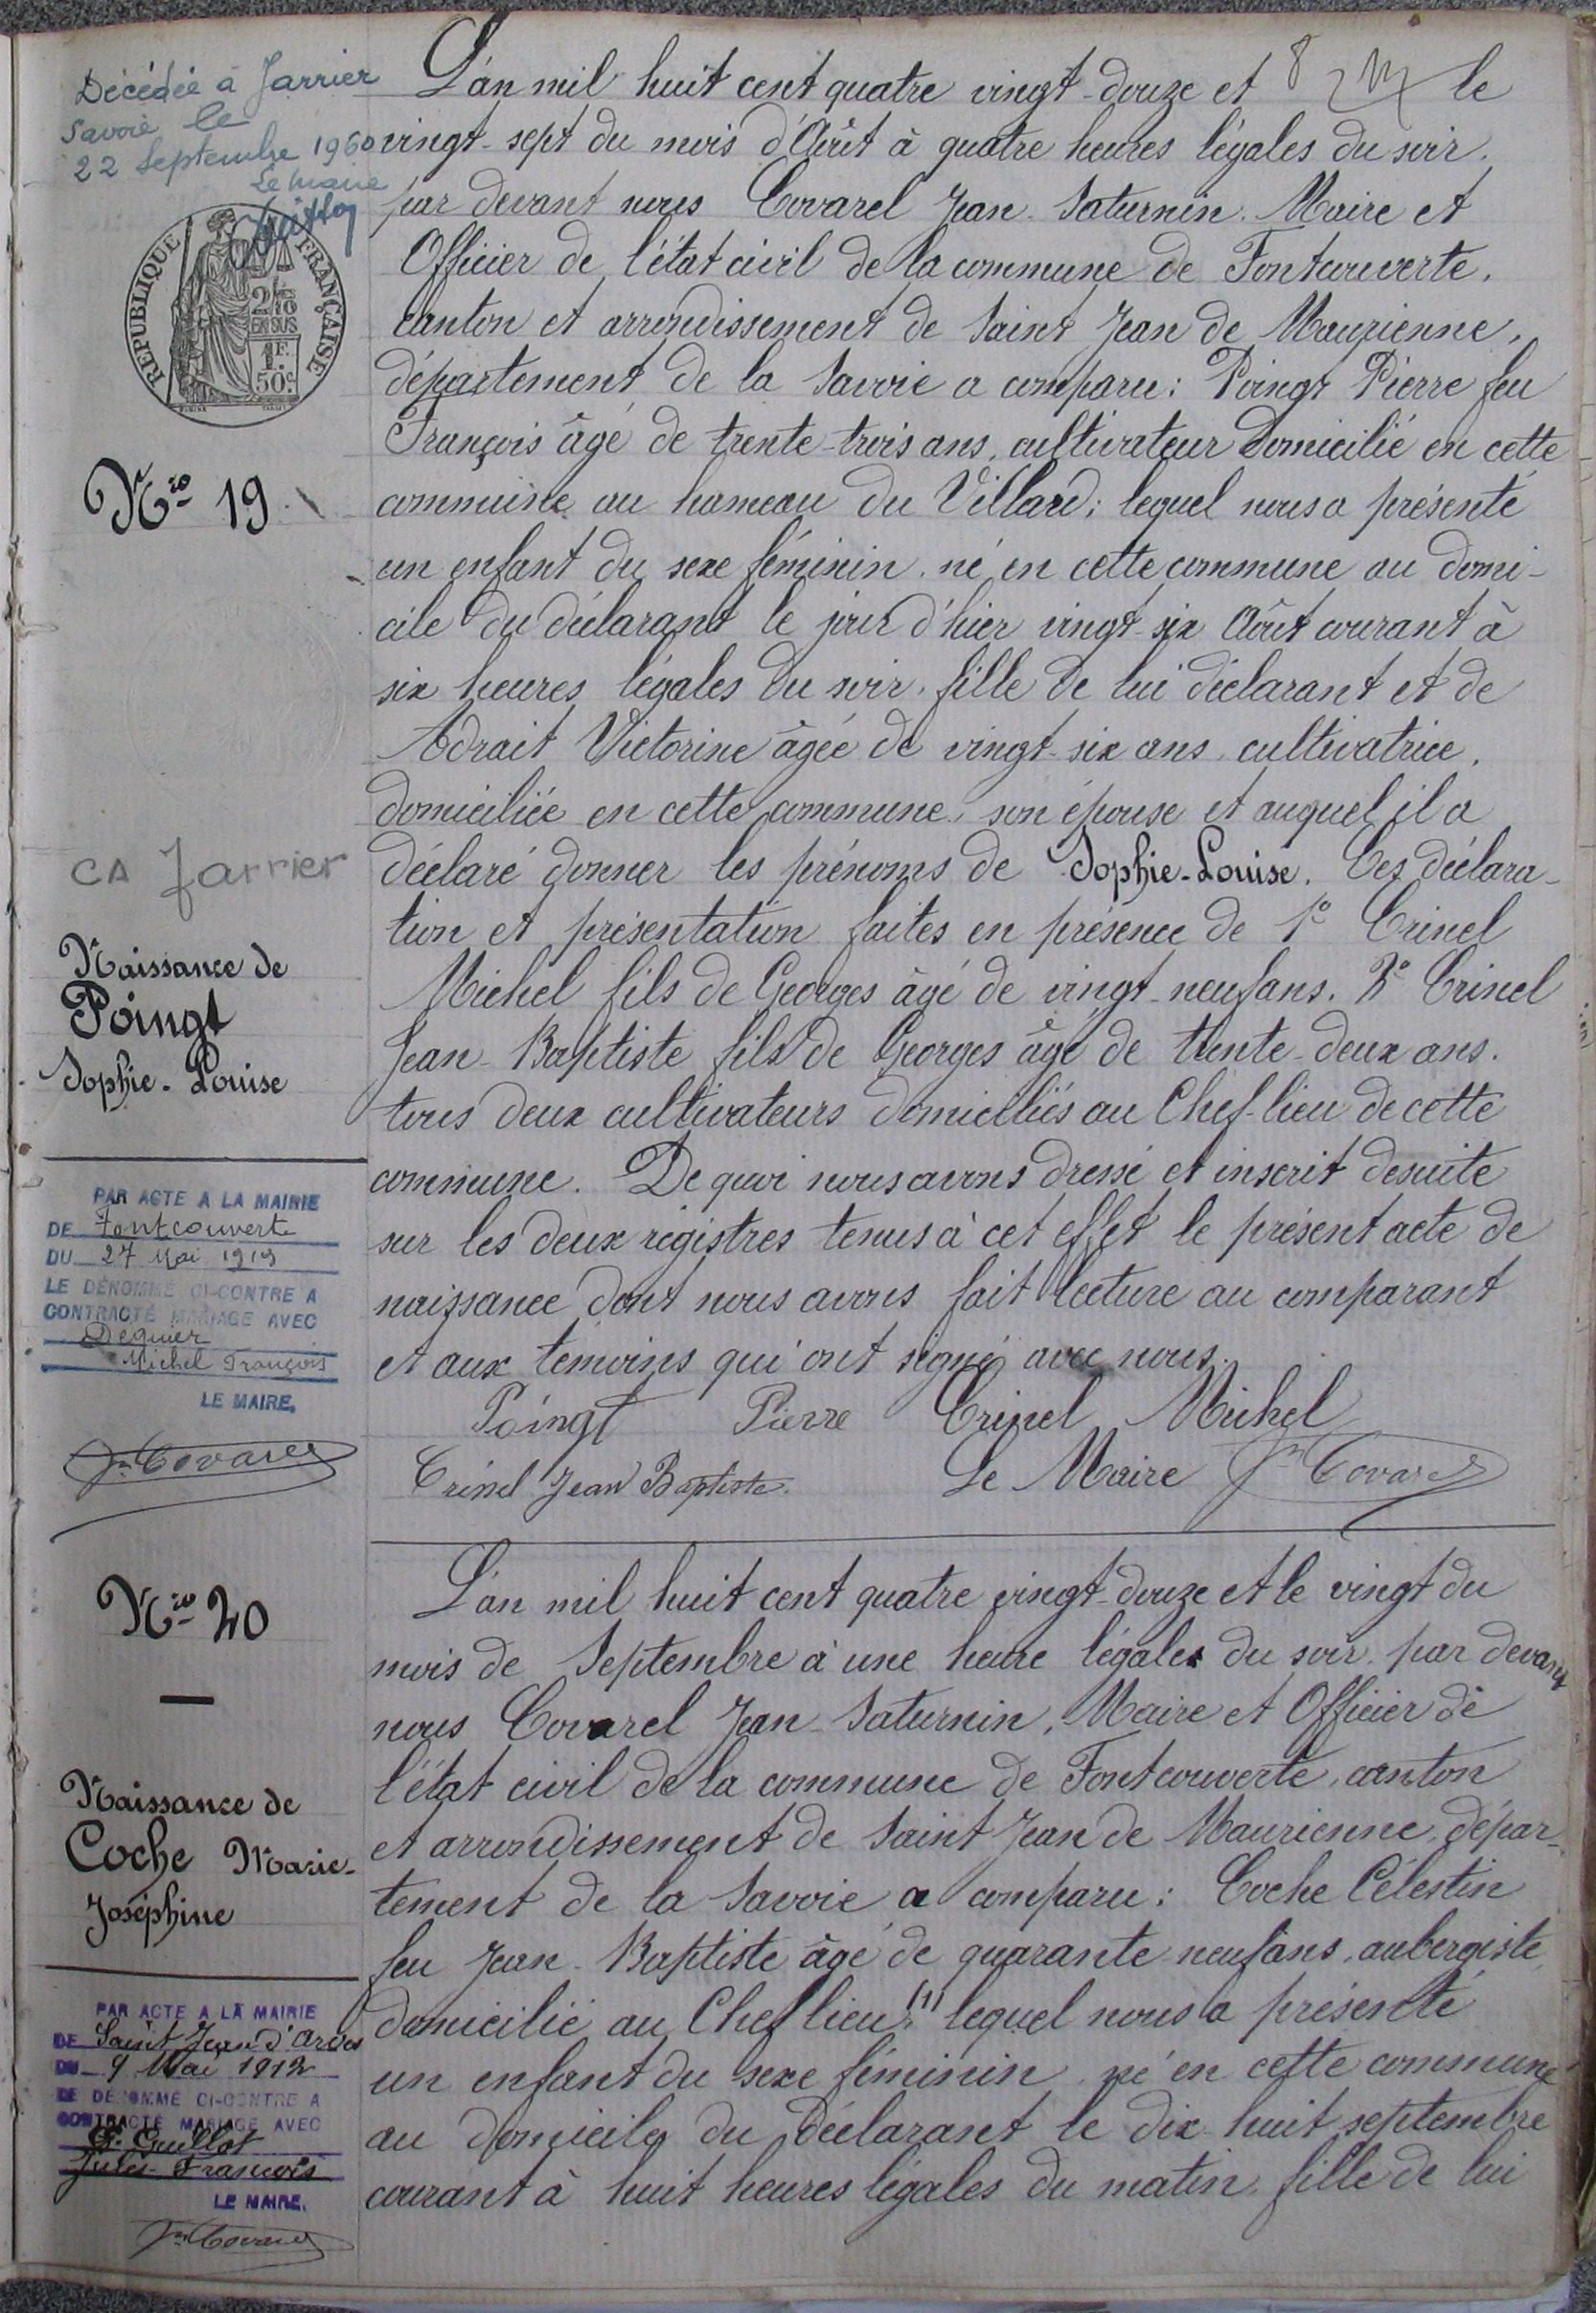 Décédée à Jarrier
Savoie le
22 Septembre 1960
Le maire
REPUBLIQUE FRANÇAISE
2/10
EN SUS
1F.
50c.
Nro 19
CA Jarrier
Naissance de
Poingt
Sophie-Louise
PAR ACTE A LA MAIRIE
DE Fontcouverte
DU 27 Mai 1919
LE DÉNOMMÉ CI-CONTRE A
CONTRACTÉ MARIAGE AVEC
Dequier
Michel François
LE MAIRE,
Jn Covarel
L'an mil huit cent quatre vingt-douze et le
vingt-sept du mois d'Août à quatre heures légales du soir.
par devant nous Covarel Jean-Saturnin. Maire et
Officier de l'état civil de la commune de Fontcouverte,
canton et arrondissement de Saint Jean de Maurienne,
département de la Savoie a comparu: Poingt Pierre feu
François âgé de trente-trois ans, cultivateur domicilié en cette
commune au hameau du Villard; lequel nous a présenté
un enfant du sexe féminin. né en cette commune au domi-
cile du déclarant le jour d'hier vingt-six Août courant à
six heures légales du soir, fille de lui déclarant et de
Adrait Victorine âgée de vingt-six ans, cultivatrice,
domiciliée en cette commune, son épouse et auquel il a
déclaré donner les prénoms de Sophie-Louise. Ces déclara-
tion et présentation faites en présence de 1o Crinel
Michel fils de Georges âgé de vingt-neuf ans. 2o Crinel
Jean-Baptiste fils de Georges âgé de trente-deux ans.
tous deux cultivateurs domiciliés au Chef-lieu de cette
commune. De quoi nous avons dressé et inscrit desuite
sur les deux régistres tenus à cet effet le présent acte de
naissance dont nous avons fait lecture au comparant
et aux témoins qui ont signé avec nous.
Poingt Pierre Crinel Michel
Crinel Jean Baptiste. Le Maire Jn Covarel
Nro 20
Naissance de
Coche Marie-
Joséphine
PAR ACTE A LA MAIRIE
DE Saint Jean d'Arves
DU 9 Mai 1912
LE DÉNOMMÉ CI-CONTRE A
CONTRACTÉ MARIAGE AVEC
Guillot
Jules-François
LE MAIRE,
Jn Covarel
L'an mil huit cent quatre vingt-douze et le vingt du
mois de Septembre à une heure légale du soir, par devant
nous Covarel Jean-Saturnin, Maire et Officier de
l'état civil de la commune de Fontcouverte, canton
et arrondissement de Saint Jean de Maurienne, dépar-
tement de la Savoie a comparu: Coche Célestin
feu Jean-Baptiste âgé de quarante-neuf ans, aubergiste
domicilié au Chef lieu (1) lequel nous a présenté
un enfant du sexe féminin, né en cette commune
au domicile du déclarant le dix-huit septembre
courant à huit heures légales du matin, fille de lui